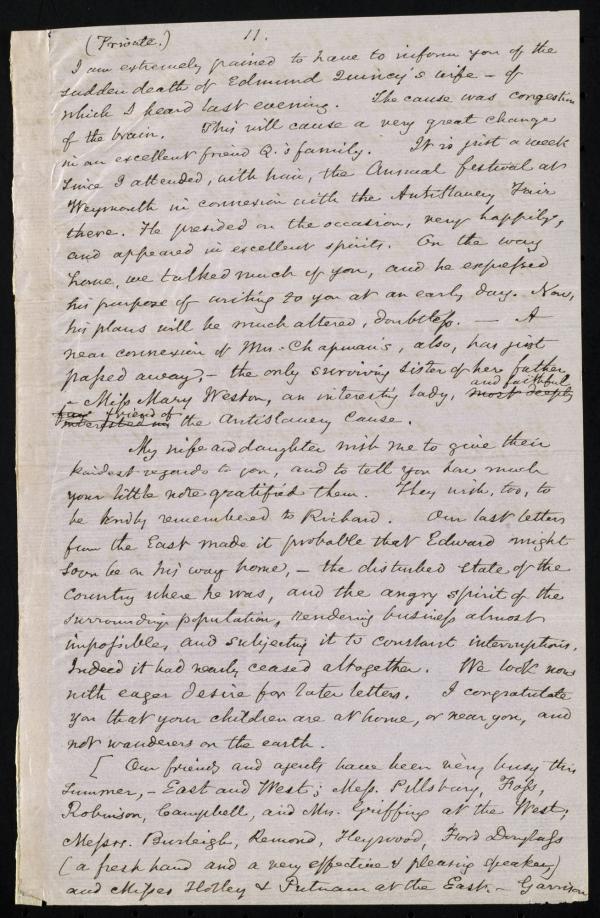 (Private.) 11.
I am extremely pained to have to inform you of the
sudden death of Edmund Quincy's wife – of
which I heard last evening. The cause was congestion
of the brain. This will cause a very great change
in our excellent friend Q.'s family. It is just a week
since I attended, with him, the Annual festival at
Weymouth in connexion with the Antislavery Fair
there. He presided on the occasion, very happily,
and appeared in excellent spirits. On the way
home, we talked much of you, and he expressed
his purpose of writing to you at an early day. Now,
his plans will be much altered, doubtless. – A
near connexion of Mrs. Chapman's, also, has just
passed away, – the only surviving sister of her father,
– Miss Mary Weston, an interesting lady, most deeply and faithful
interested in friend of the Antislavery Cause.
My wife and daughter wish me to give their
kindest regards to you, and to tell you how much
your little note gratified them. They wish, too, to
be kindly remembered to Richard. Our last letters
from the East made it probable that Edward might
soon be on his way home, – the disturbed state of the
country where he was, and the angry spirit of the
surrounding population, rendering business almost
impossible, and subjecting it to constant interruptions.
Indeed it had nearly ceased altogether. We look now
with eager desire for later letters. I congratulate
you that your children are at home, or near you, and
not wanderers on the earth.
[ Our friends and agents have been very busy this
summer, – East and West; Mess. Pillsbury, Foss,
Robinson, Campbell, and Mrs. Griffing at the West;
Messrs. Burleigh, Remond, Heywood, Ford Douglass
(a fresh hand and a very effective & pleasing speaker)
and Misses Holley & Putnam at the East. – Garrison